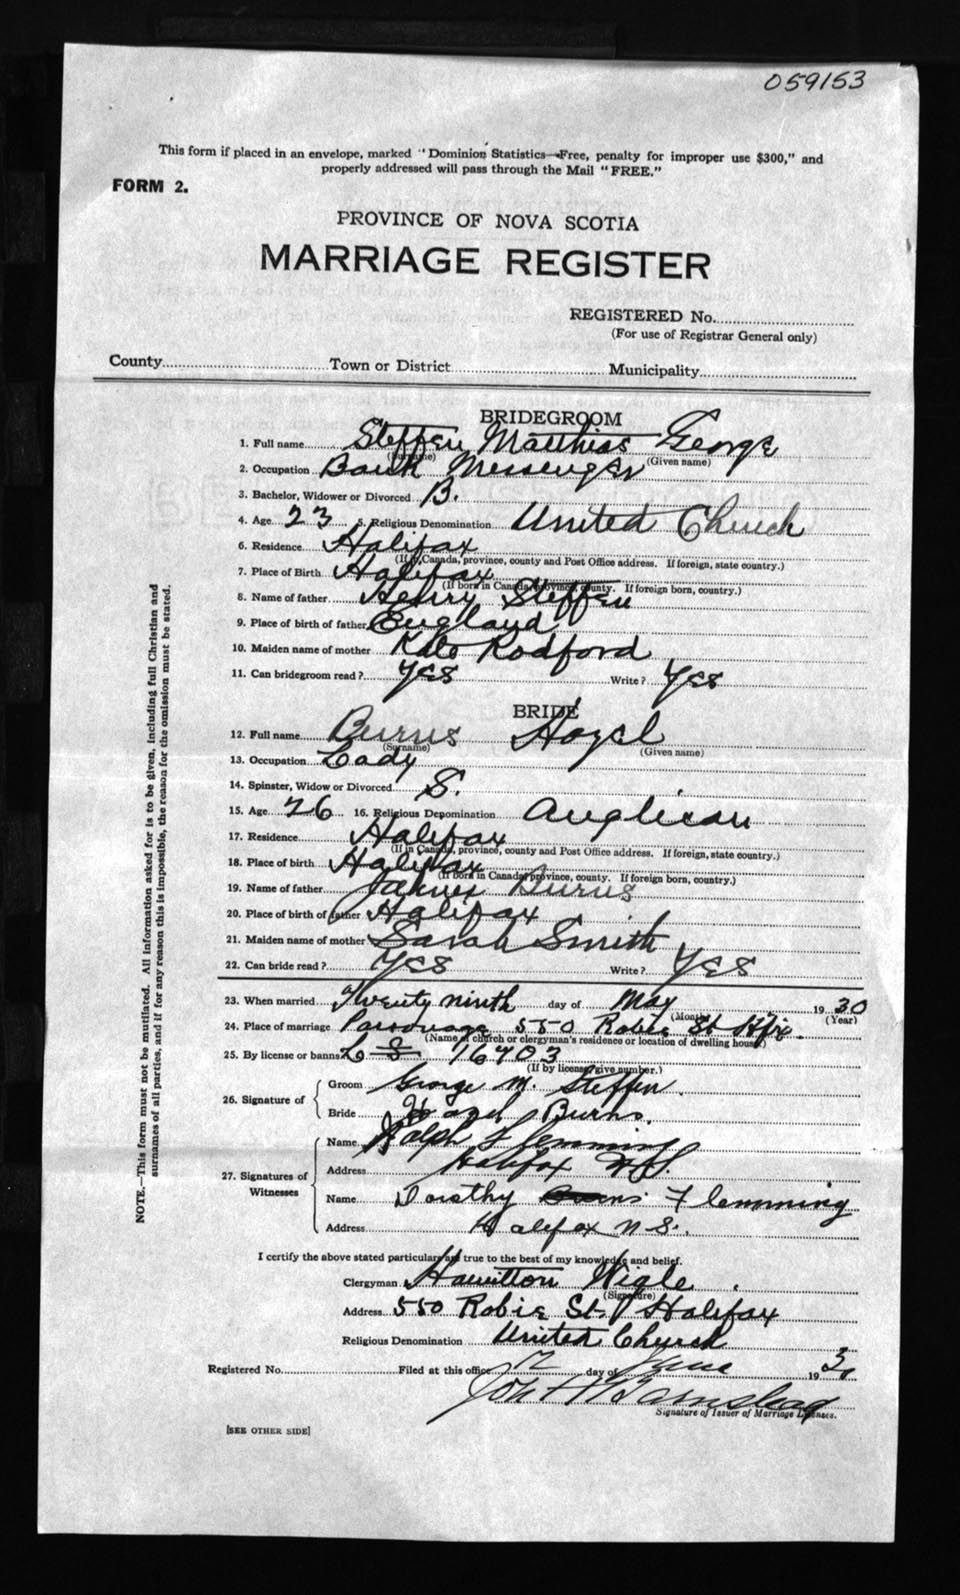 059153
This form if placed in an envelope, marked "Dominion Statistics—Free, penalty for improper use $300," and
properly addressed will pass through the Mail "FREE."
FORM 2.
PROVINCE OF NOVA SCOTIA
MARRIAGE REGISTER
REGISTERED No.
(For use of Registrar General only)
County Town or District Municipality
BRIDEGROOM
1. Full name Steffen Matthias George
(Surname) (Given name)
2. Occupation Bank Messenger
3. Bachelor, Widower or Divorced B.
4. Age 23 5. Religious Denomination United Church
6. Residence Halifax
(If in Canada, province, county and Post Office address. If foreign, state country.)
7. Place of Birth Halifax
(If born in Canada, province, county. If foreign born, country.)
8. Name of father Henry Steffen
9. Place of birth of father England
10. Maiden name of mother Kate Rodford
11. Can bridegroom read? Yes Write? Yes
BRIDE
12. Full name Burns Hazel
(Surname) (Given name)
13. Occupation Lady
14. Spinster, Widow or Divorced S.
15. Age 26 16. Religious Denomination Anglican
17. Residence Halifax
(If in Canada, province, county and Post Office address. If foreign, state country.)
18. Place of birth Halifax
(If born in Canada, province, county. If foreign born, country.)
19. Name of father James Burns
20. Place of birth of father Halifax
21. Maiden name of mother Sarah Smith
22. Can bride read? Yes Write? Yes
23. When married Twenty ninth day of May 1930
(Month) (Year)
24. Place of marriage Parsonage 550 Robie St Hfx.
(Name of church or clergyman's residence or location of dwelling house)
25. By license or banns L 16403
(If by license, give number.)
26. Signature of
Groom George M. Steffen
Bride Hazel Burns.
27. Signatures of Witnesses
Name Ralph Flemming
Address Halifax N.S.
Name Dorothy Flemming
Address Halifax N.S.
I certify the above stated particulars are true to the best of my knowledge and belief.
Clergyman Hamilton Wigle.
(Signature)
Address 550 Robie St. Halifax
Religious Denomination United Church
Registered No. Filed at this office 2 day of June 1930
Signature of Issuer of Marriage Licenses.
[SEE OTHER SIDE]
NOTE.—This form must not be mutilated. All information asked for is to be given, including full Christian and
surnames of all parties, and if for any reason this is impossible, the reason for the omission must be stated.